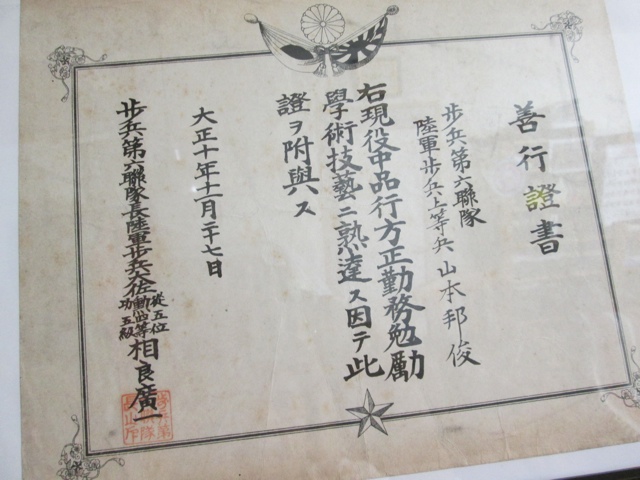 善行證書
歩兵第六聯隊
陸軍歩兵上等兵 山本邦俊
右現役中品行方正勤務勉勵
學術技藝ニ熟達ス因テ此
證ヲ附與ス
大正十年十一月二十七日
歩兵第六聯隊長陸軍歩兵大佐 從五位 勳四等 功五級 相良廣一